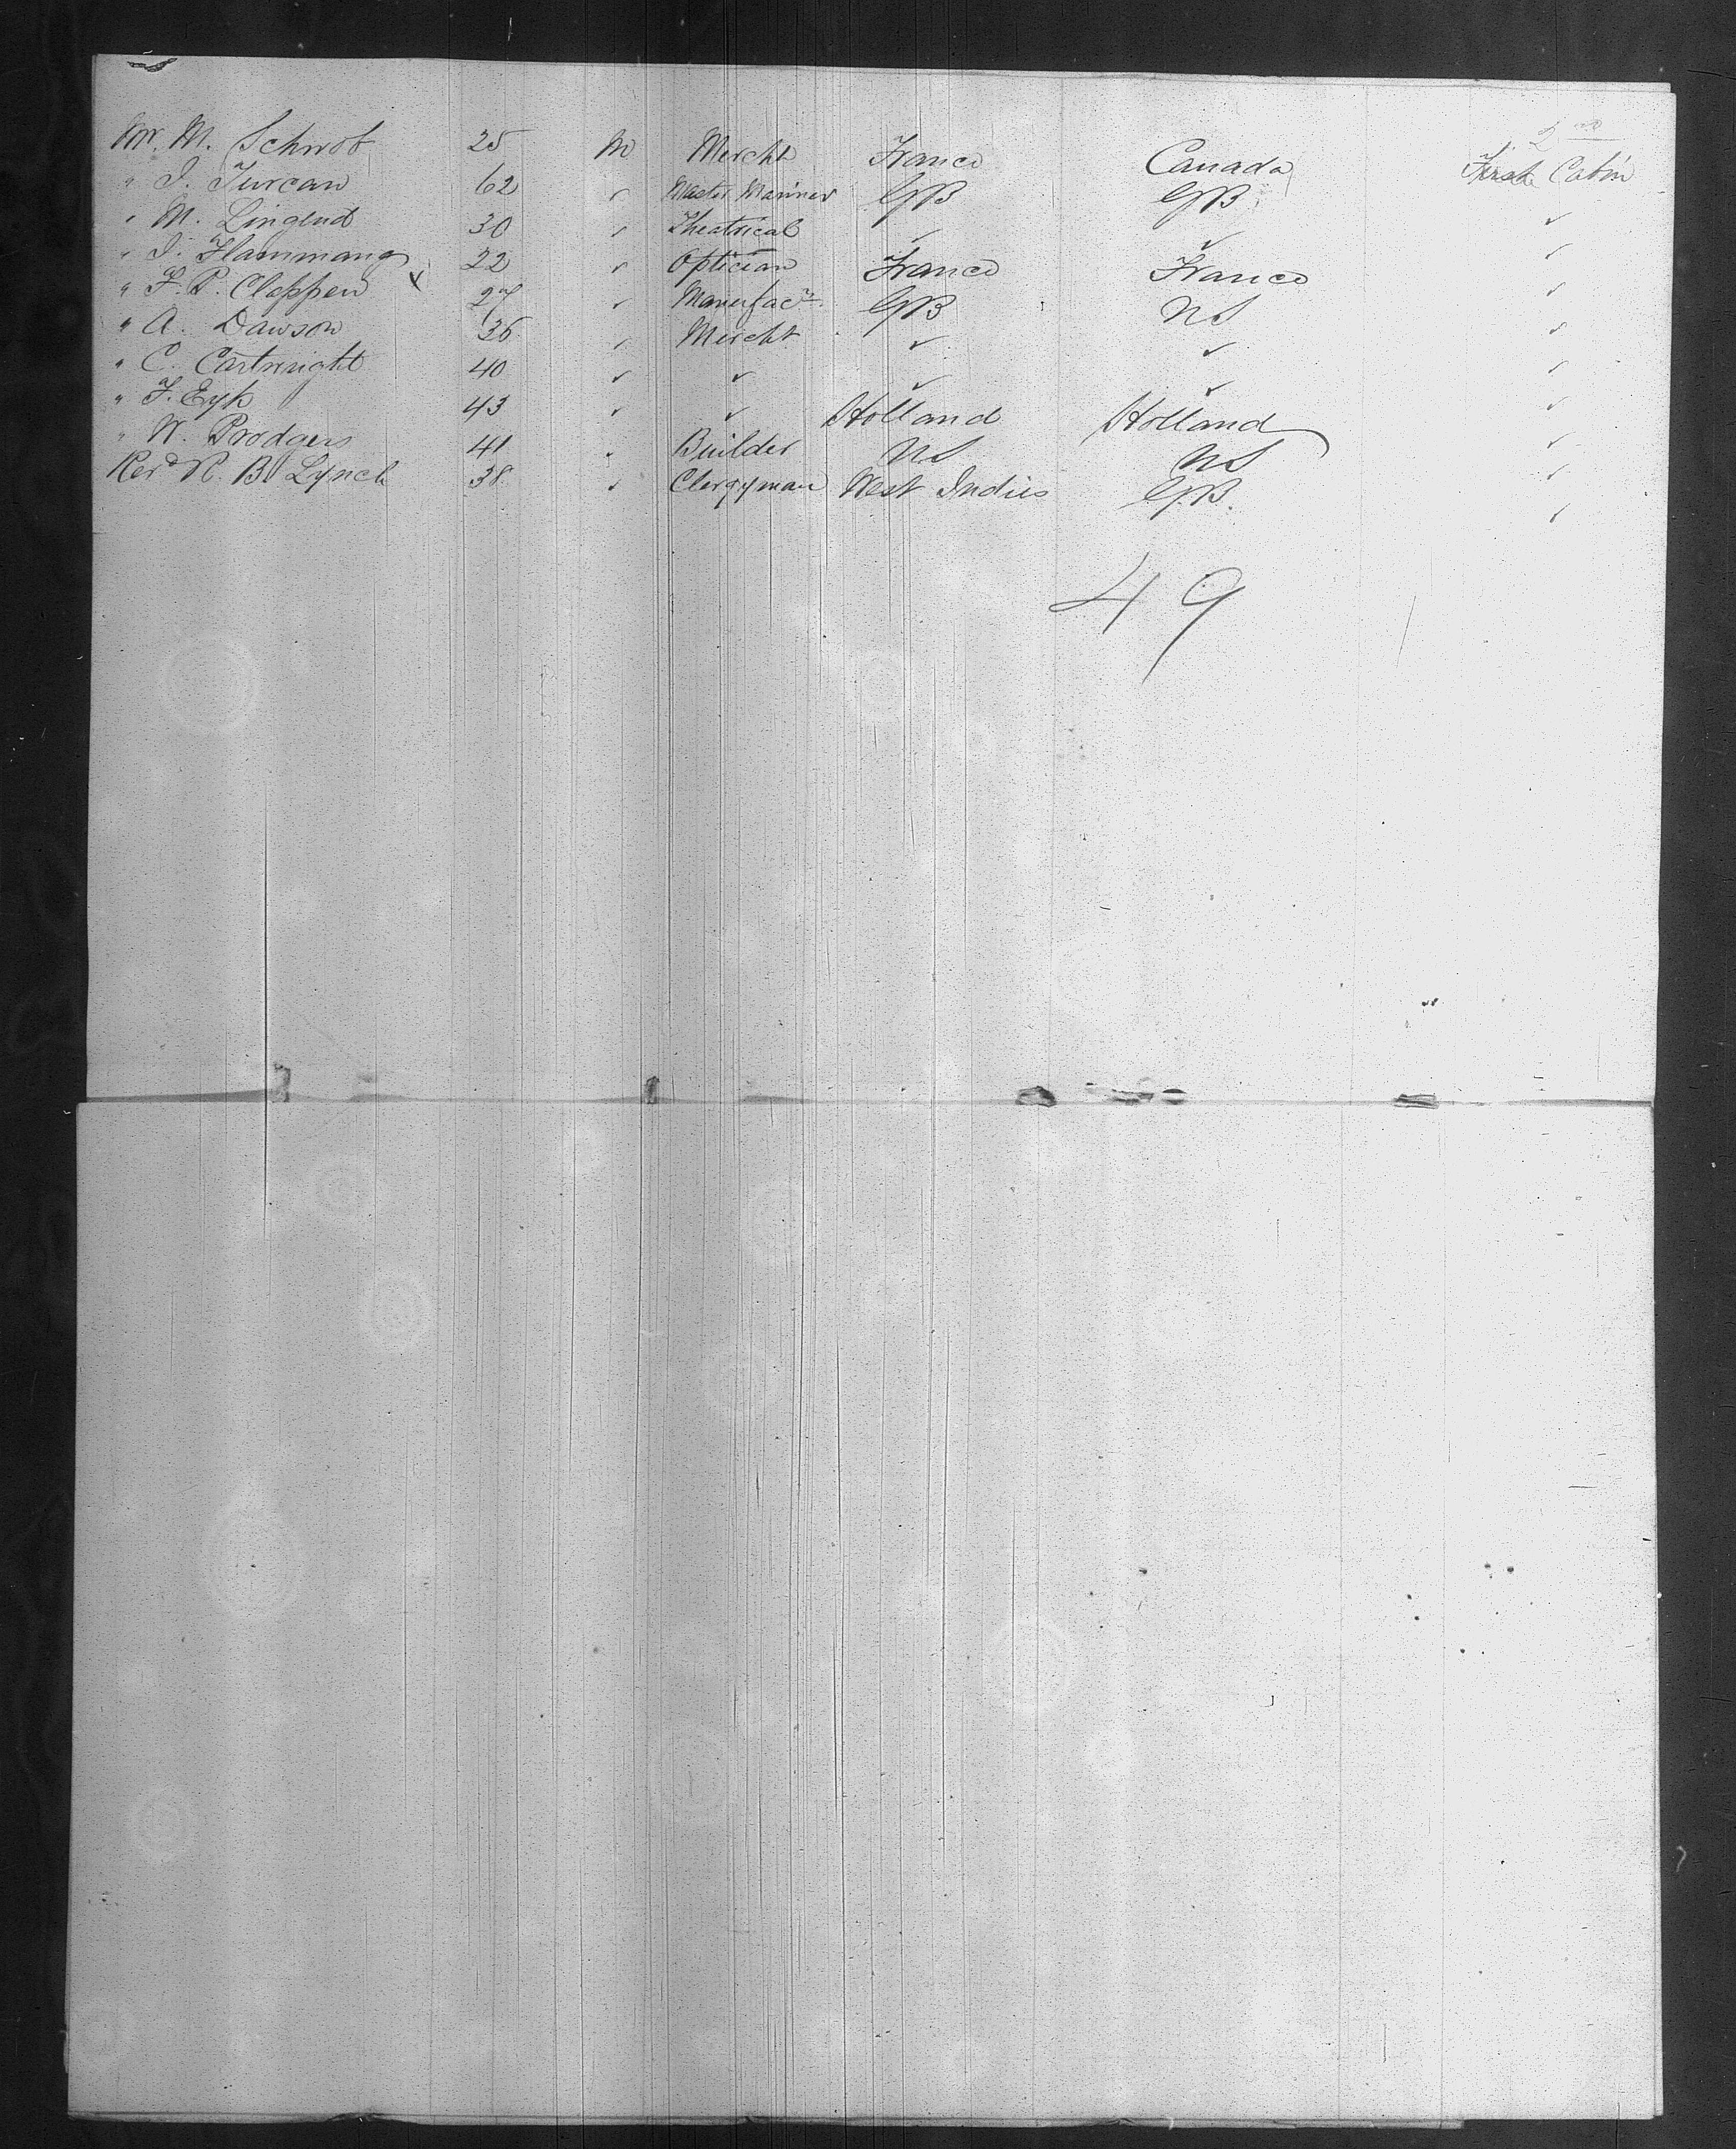 2nd
Mr. M. Schwob 25 M Mercht France Canada First Cabin
" J. Turcan 62 ✓ Master Mariner GB GB ✓
" M. Lingend 30 ✓ Theatrical ✓ ✓ ✓
" J. Flammang 22 ✓ Optician France France ✓
" F. P. Cleppen x 27 ✓ Manufacr. GB NS ✓
" A. Dawson 36 ✓ Mercht ✓ ✓ ✓
" C. Cartwright 40 ✓ ✓ ✓ ✓ ✓
" F. Eyk 43 ✓ ✓ Holland Holland ✓
" W. Prodgers 41 " Builder NS NS ✓
Revd R. B. Lynch 38 ✓ Clergyman West Indies GB. ✓
49